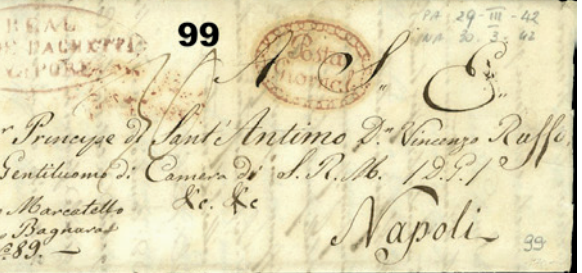 REAL
DE PACHETTI
VAPORE
99
Posta
PA. 29-III-42
NA 30.3.42
A S. E.
Principe di Sant'Antimo Dn. Vincenzo Ruffo
Gentiluomo di Camera di S. R. M. (D. G.)
&c. &c
Marcatello
Bagnara
89.
Napoli
99